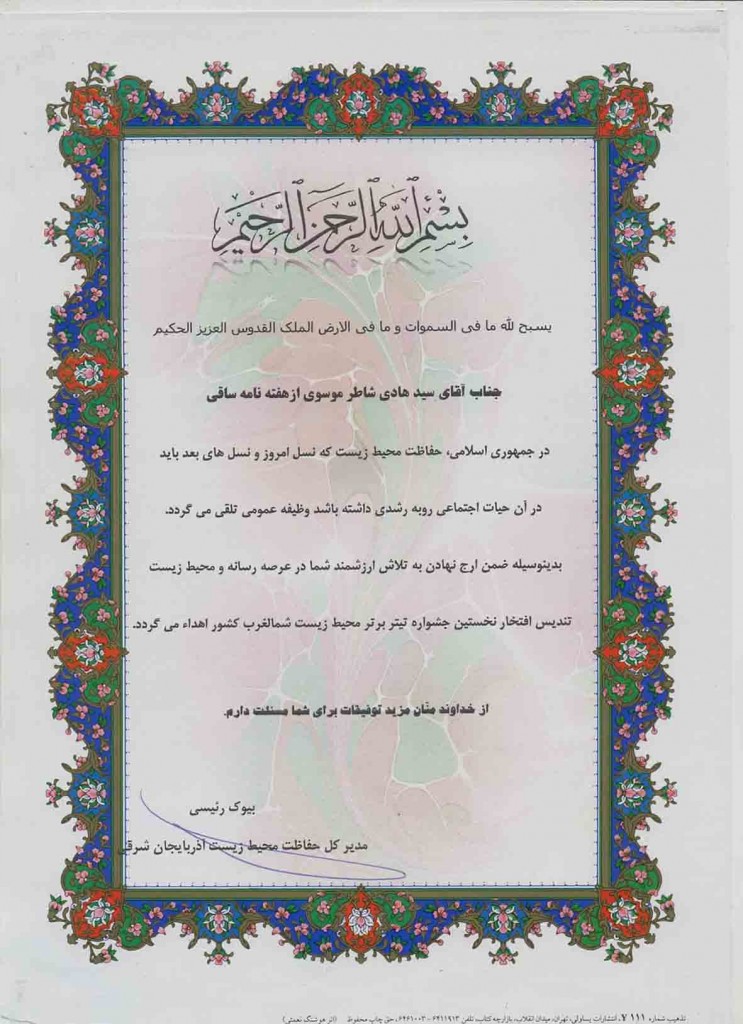 بسم الله الرحمن الرحیم
یسبح لله ما فی السموات و ما فی الارض الملک القدوس العزیز الحکیم
جناب آقای سید هادی شاطر موسوی از هفته نامه ساقی
در جمهوری اسلامی، حفاظت محیط زیست که نسل امروز و نسل های بعد باید
در آن حیات اجتماعی روبه رشدی داشته باشد وظیفه عمومی تلقی می گردد.
بدینوسیله ضمن ارج نهادن به تلاش ارزشمند شما در عرصه رسانه و محیط زیست
تندیس افتخار نخستین جشنواره تیتر برتر محیط زیست شمالغرب کشور اهداء می گردد.
از خداوند منّان مزید توفیقات برای شما مسئلت دارم.
بیوک رئیسی
مدیر کل حفاظت محیط زیست آذربایجان شرقی
تذهیب شماره ۷۱۱۱، انتشارات یساولی، تهران، میدان انقلاب، بازارچه کتاب، تلفن ۶۴۱۱۹۱۳ - ۶۴۶۱۰۰۳، حق چاپ محفوظ (اثر هوشنگ نعمتی)